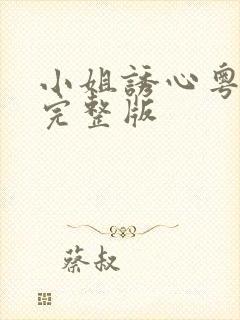 小姐誘心粵
完整版
蔡叔